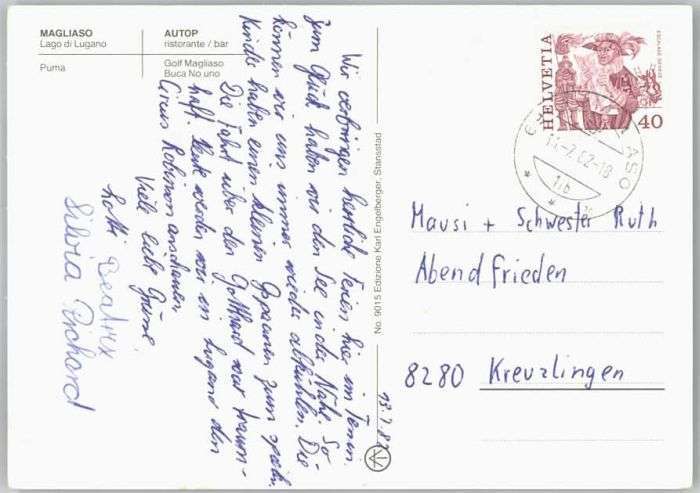 MAGLIASO
Lago di Lugano
Puma
AUTOP
ristorante / bar
Golf Magliaso
Buca No uno
Wir verbringen herrliche Ferien hier im Tessin.
Zum Glück haben wir den See in der Nähe. So
können wir uns immer wieder abkühlen. Die
Kinder haben einen kleinen zum spielen.
Die Fahrt über den Gotthard war traum-
haft. Heute werden wir in Lugano den
Circus Robinson anschauen
Viele liebe Grüsse
Lotti Beatrix
Silvia Richard
No. 9015 Edizione Karl Engelberger, Stansstad
19.7.82
HELVETIA
40
ASO
Mausi + Schwester Ruth
Abendfrieden
8280 Kreuzlingen